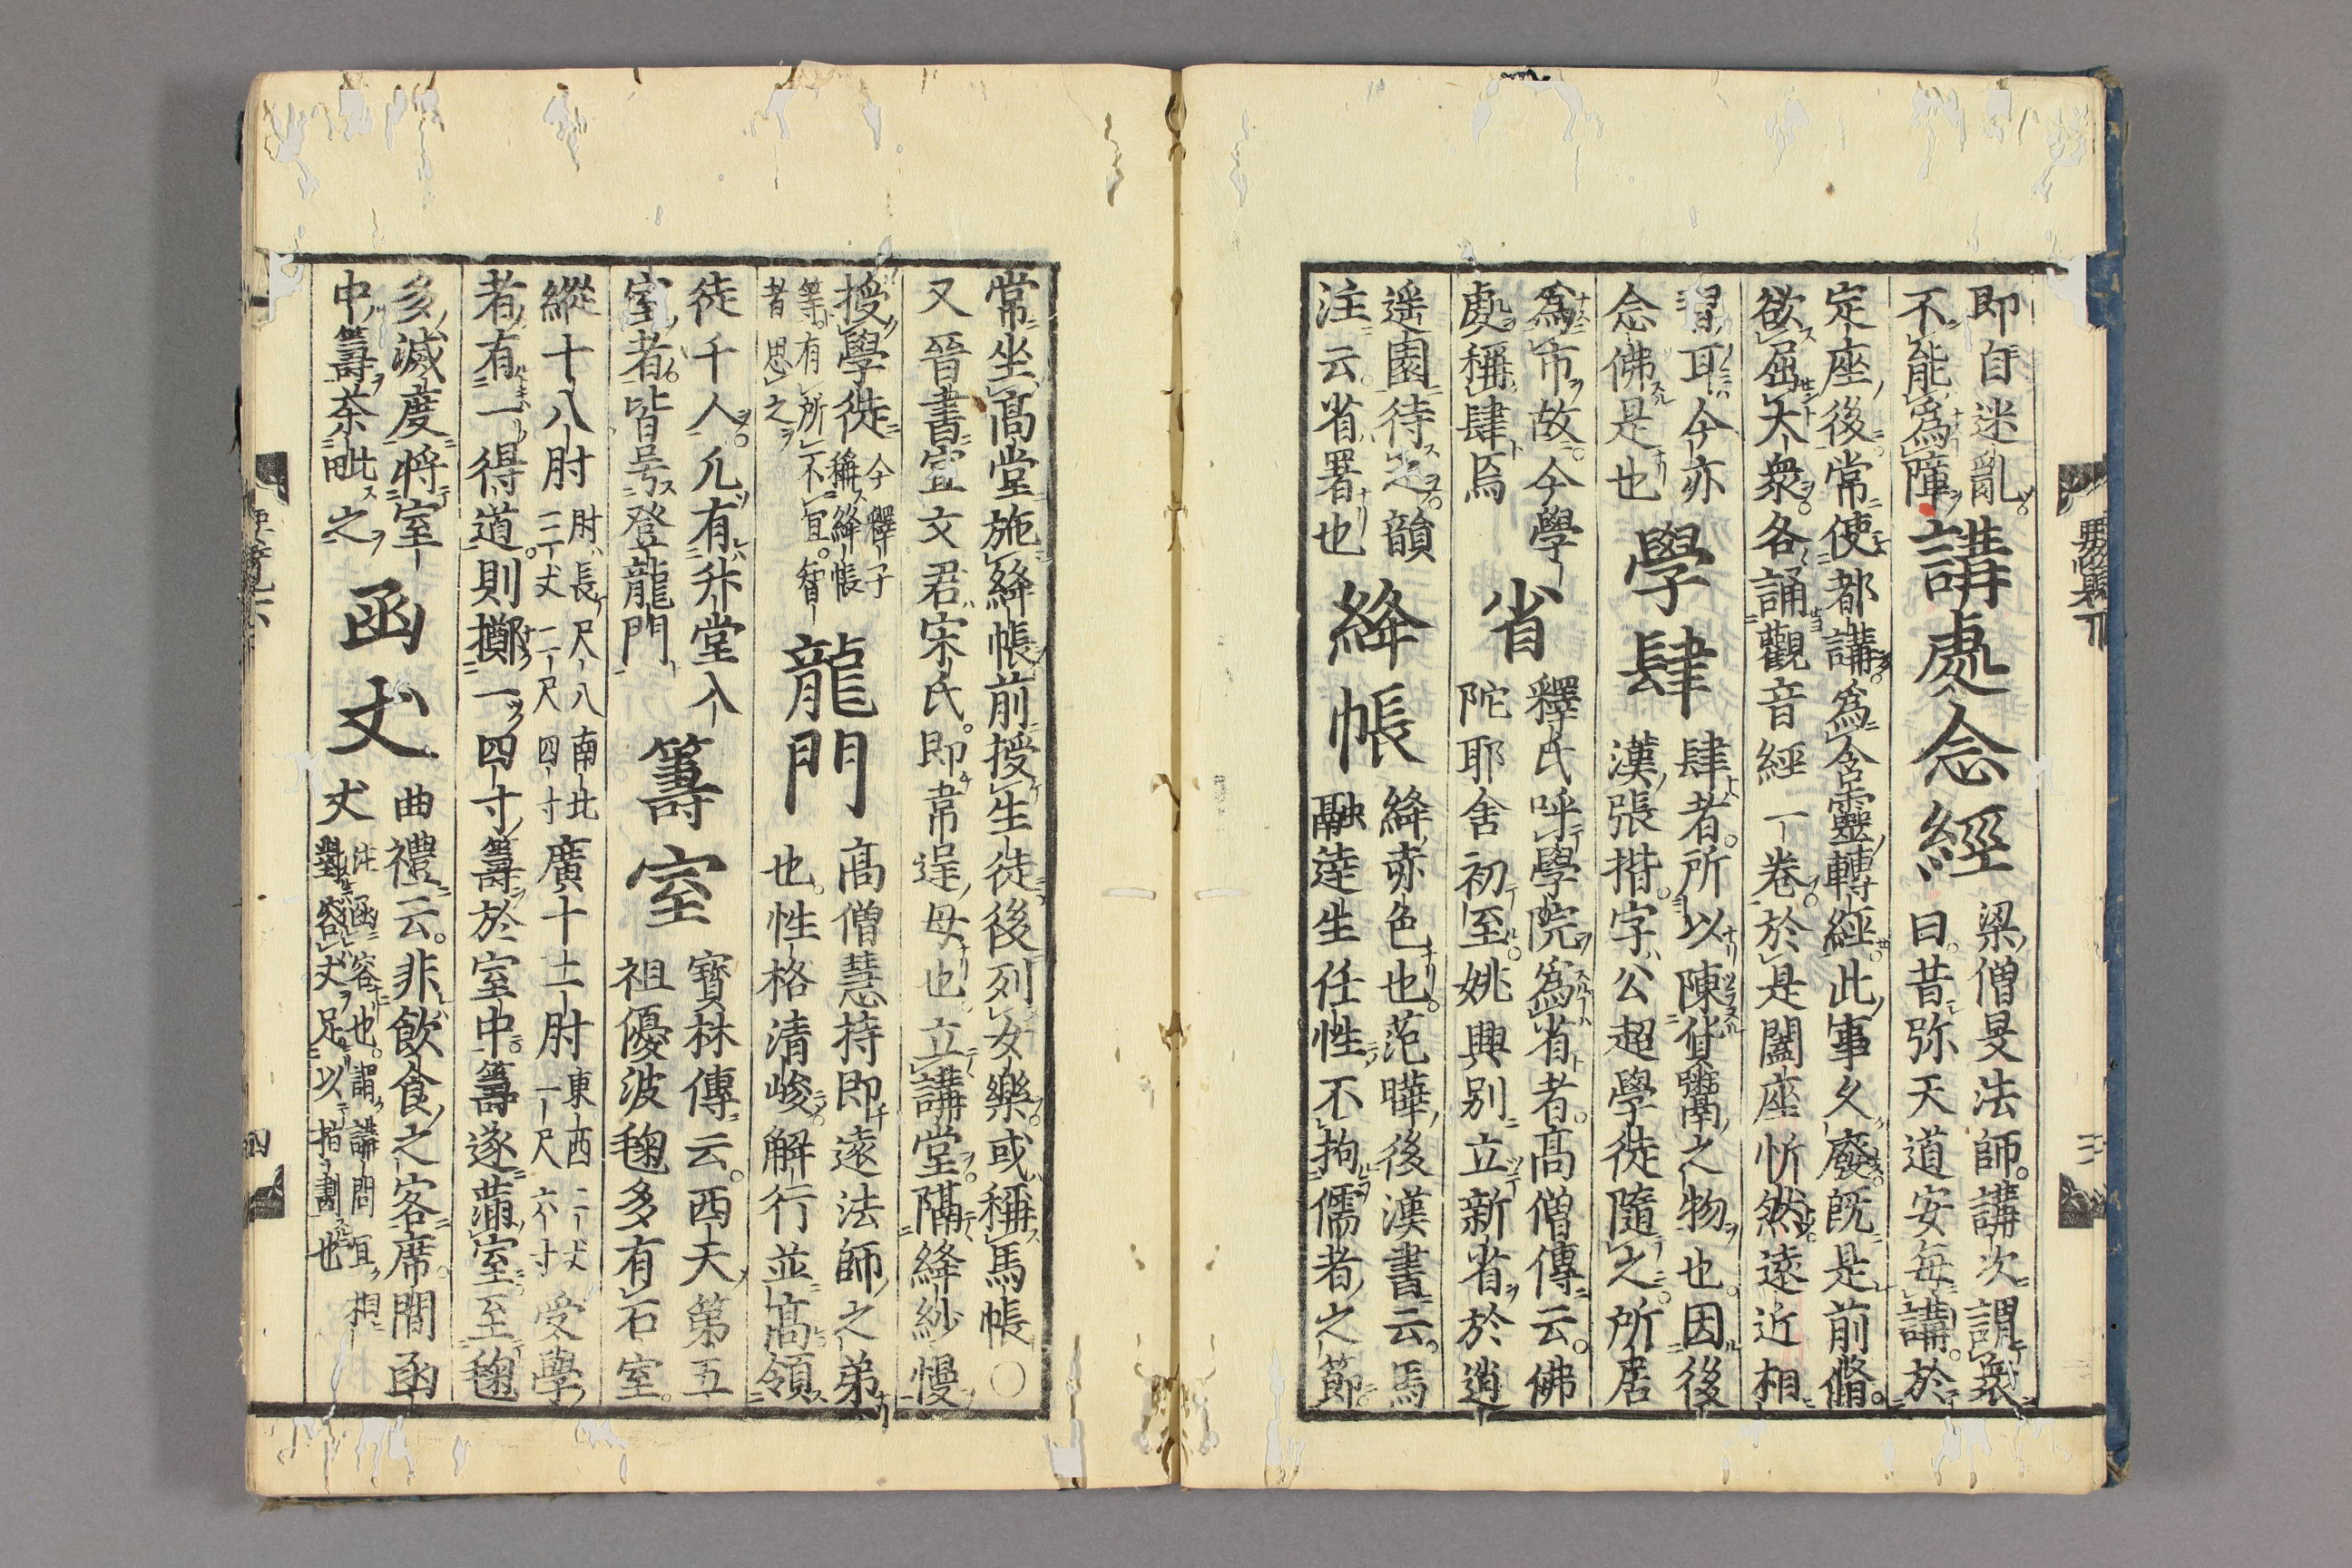 即自迷亂。
不能為障
講處念經
梁僧旻法師。講次謂衆
曰。昔弥天道安每講。於
定座後。常使都講。為含靈轉經。此事久廢。既是前脩。
欲屈大衆。各誦觀音經一卷。於是闔座忻然。遠近相
習耳。今亦
念佛是也
學肆
肆者。所以陳貨鬻之物也。因後
漢張揩。字公超學徒隨之。所居
為市故。今學
處稱肆焉
省
釋氏呼學院為省者。高僧傳云。佛
陀耶舍初至。姚興別立新省於逍
遥園待之。韻
注云。省署也
絳帳
絳赤色也。范曄後漢書云。馬
融達生任性。不拘儒者之節
常坐高堂施絳帳。前授生徒。後列女樂。或稱馬帳〇
又晉書宣文君宋氏。即韋逞母也。立講堂。隔絳紗幔
授學徒
今釋子
稱絳帳
等有所不宜。智
者思之
龍門
高僧慧持即遠法師之弟
也。性格清峻。解行並高領
徒千人。凡有升堂入
室者。皆号登龍門
籌室
寶林傳云。西天第五
祖優波毱多有石室。
縱十八肘
肘長尺八南北
三丈二尺四寸
廣十二肘
東西二丈
一尺六寸
受學
者有一得道。則擲一四寸籌於室中。籌遂滿室。至毱
多滅度將室
中籌荼毗之
函丈
曲禮云。非飲食之客席。間函
丈
注函容也。謂講問宜相
對容丈足以指劃也